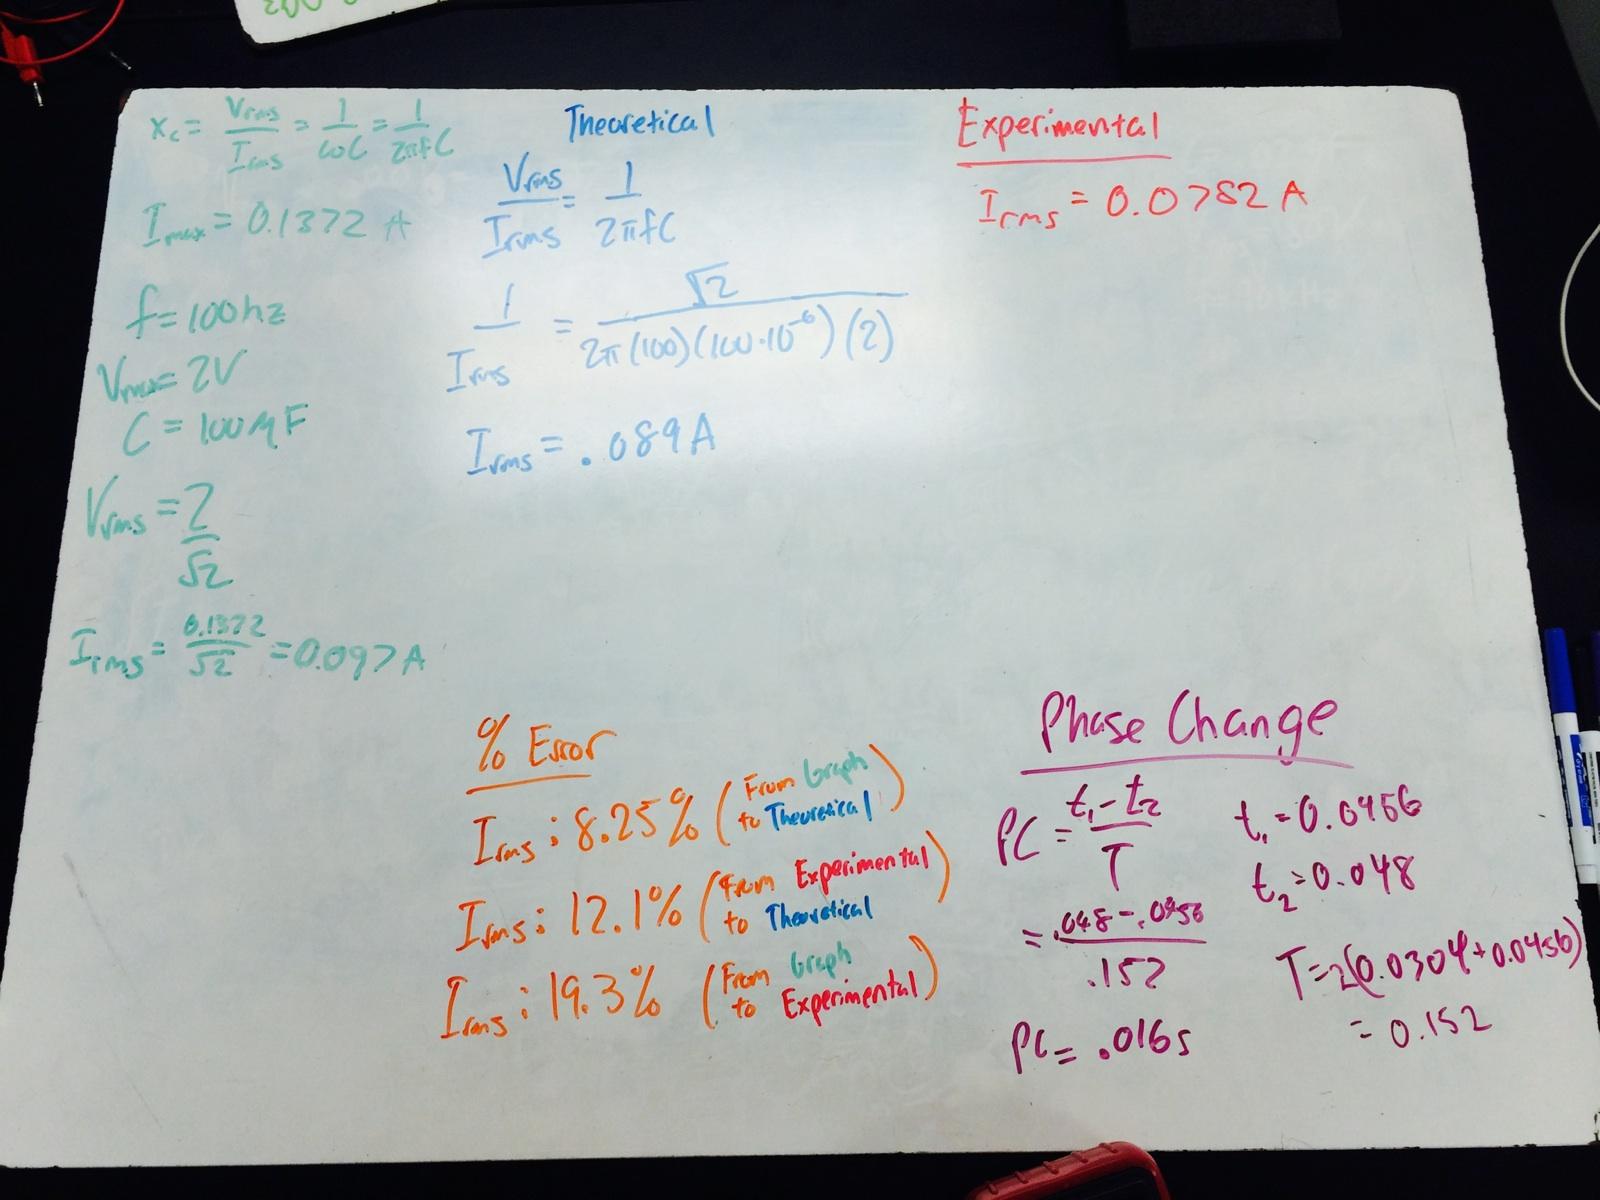 Xc = Vrms/Irms = 1/ωC = 1/2πfC
Imax = 0.1372 A
f = 100hz
Vmax = 2V
C = 100μF
Vrms = 2/√2
Irms = 0.1372/√2 = 0.097 A
Theoretical
Vrms/Irms = 1/2πfC
1/Irms = √2/2π(100)(100·10⁻⁶)(2)
Irms = .089A
Experimental
Irms = 0.0782 A
% Error
Irms: 8.25% (From Graph
to Theoretical)
Irms: 12.1% (From Experimental
to Theoretical)
Irms: 19.3% (From Graph
to Experimental)
Phase Change
PC = t₁-t₂/T
= .048-.0456/.152
PC = .016s
t₁=0.0456
t₂=0.048
T=2(0.0304+0.0456)
= 0.152